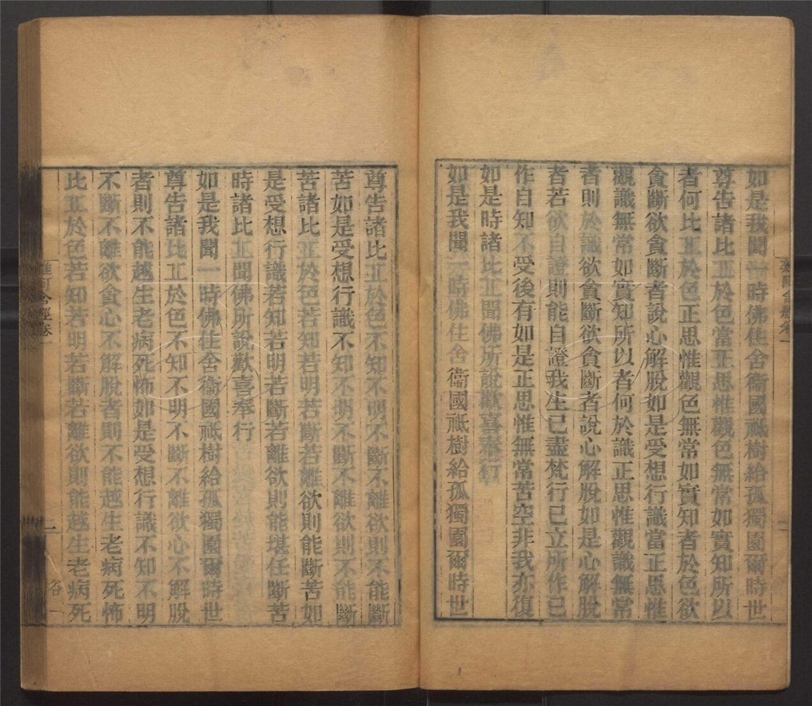 如是我聞一時佛住舍衞國祗樹給孤獨園爾時世
尊告諸比丘於色當正思惟觀色無常如實知所以
者何比丘於色正思惟觀色無常如實知者於色欲
貪斷欲貪斷者說心解脫如是受想行識當正思惟
觀識無常如實知所以者何於識正思惟觀識無常
者則於識欲貪斷欲貪斷者說心解脫如是心解脫
者若欲自證則能自證我生已盡梵行已立所作已
作自知不受後有如是正思惟無常苦空非我亦復
如是時諸比丘聞佛所說歡喜奉行
如是我聞一時佛住舍衞國祗樹給孤獨園爾時世
尊告諸比丘於色不知不明不斷不離欲則不能斷
苦如是受想行識不知不明不斷不離欲則不能斷
苦諸比丘於色若知若明若斷若離欲則能斷苦如
是受想行識若知若明若斷若離欲則能堪任斷苦
時諸比丘聞佛所說歡喜奉行
如是我聞一時佛住舍衞國祗樹給孤獨園爾時世
尊告諸比丘於色不知不明不斷不離欲心不解脫
者則不能越生老病死怖如是受想行識不知不明
不斷不離欲貪心不解脫者則不能越生老病死怖
比丘於色若知若明若斷若離欲則能越生老病死
雜阿含經卷一
一
谷一